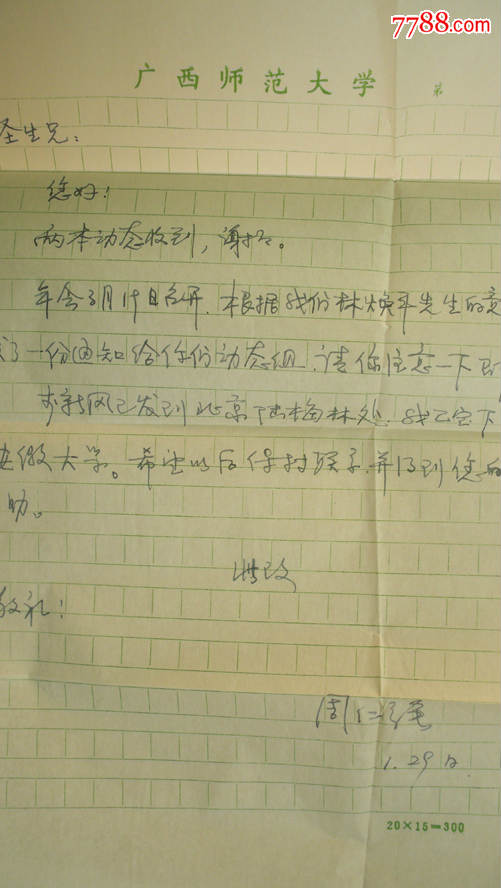 7788.com
中国收藏热线
广西师范大学
第
圣生兄：
您好！
两本动态收到，谢谢。
年会3月19日召开，根据我们林焕平先生的意
了一份通知给你们动态组，请你注意一下
已发到北京
大学。希望以后保持联系，并得到您的
助。
此致
敬礼！
周
1.29日
20×15=300